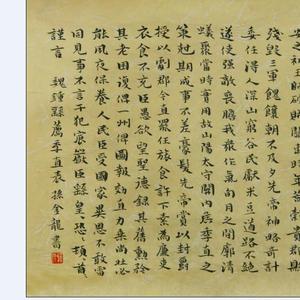 殘毀三軍餽饟朝不及夕先帝神略奇計
委任得人深山窮谷民獻米豆道路不絕
遂使強敵喪膽我眾作氣旬月之間廓清
蟻聚當時實用故山陽太守關內侯季直之
策剋期成事不差豪髮先帝賞以封爵
授以劇郡今直罷任旅食許下素為廉吏
衣食不充臣愚欲望聖德錄其舊勳矜
其老困復俾一州俾圖報效直力氣尚壯必
能夙夜保養人民臣受國家異恩不敢雷
同見事不言干犯宸嚴臣繇皇恐頓首
謹言 魏鍾繇薦季直表 孫金龍書